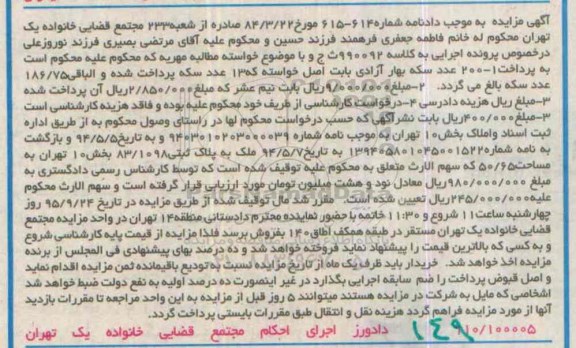 آگهی مزایده به موجب دادنامه شماره۶۱۴-۶۱۵ مورخ۸۴/۳/۲۲ صادره از شعبه۲۳۳ مجتمع قضایی خانواده یک
تهران محکوم له خانم فاطمه جعفری فرهمند فرزند حسین و محکوم علیه آقای مرتضی بصیری فرزند نوروزعلی
درخصوص پرونده اجرایی به کلاسه ۹۹۰۰۹۲ث ج و با موضوع خواسته مطالبه مهریه که محکوم علیه محکوم است
به پرداخت۱-۲۰۰ عدد سکه بهار آزادی بابت اصل خواسته که۱۳ عدد سکه پرداخت شده و الباقی۱۸۶/۷۵
عدد سکه بالغ می گردد. ۲-مبلغ۹/۰۰۰/۰۰۰ریال بابت نیم عشر که مبلغ۲/۸۵۰/۰۰۰ریال آن پرداخت شده
۳-مبلغ ریال هزینه دادرسی ۴-درخواست کارشناسی از طریف خود محکوم علیه بوده و فاقد هزینه کارشناسی است
۳-مبلغ۴۰۰/۰۰۰ریال بابت نشرآگهی که حسب درخواست محکوم لها در راستای وصول محکوم به از طریق اداره
ثبت اسناد واملاک بخش۱۰ تهران به موجب نامه شماره ۹۴۰۳۰۱۰۲۰۳۰۰۰۰۳۹ و به تاریخ۹۴/۵/۵ و بازگشت
به نامه شماره۱۳۹۴۰۵۸۰۱۰۴۵۰۰۱۵۲۲ به تاریخ۹۴/۵/۷ ملک به پلاک ثبتی۸۳/۱۰۹۸ بخش۱۰ تهران به
مساحت۵۰/۶۵ که سهم الارث متعلق به محکوم علیه توقیف شده است که توسط کارشناس رسمی دادگستری به
مبلغ ۹۸۰/۰۰۰/۰۰۰ریال معادل نود و هشت میلیون تومان مورد ارزیابی قرار گرفته است و سهم الارث محکوم
علیه۲۴۵/۰۰۰/۰۰۰ریال تعیین شده است. مقرر شد مال توقیف شده از طریق مزایده در تاریخ ۹۵/۹/۲۴ روز
چهارشنبه ساعت۱۱ شروع و ۱۱:۳۰ خاتمه با حضور نماینده محترم دادستانی منطقه۱۴ تهران در واحد مزایده مجتمع
قضایی خانواده یک تهران مستقر در طبقه همکف اطاق۱۴۰ بفروش برسد فلذا مزایده از قیمت پایه کارشناسی شروع
و به کسی که بالاترین قیمت را پیشنهاد دهد فروخته خواهد شد و ده درصد بهای پیشنهادی فی المجلس از برنده
مزایده اخذ خواهد شد. خریدار باید ظرف یک ماه از تاریخ مزایده نسبت به تودیع باقیمانده ثمن مزایده اقدام نماید
و اصل قبوض پرداخت را ضم سابقه اجرایی بگذارد در غیر اینصورت ده درصد اولیه به نفع دولت ضبط خواهد شد
اشخاصی که مایل به شرکت در مزایده هستند میتوانند ۵ روز قبل از مزایده به این واحد مراجعه تا مقررات بازدید
آنها از مورد مزایده فراهم گردد هزینه نقل و انتقال طبق مقررات بایستی پرداخت گردد.
۱۰/۱۰۰۰۰۵ ۱۴۹ دادورز اجرای احکام مجتمع قضایی خانواده یک تهران